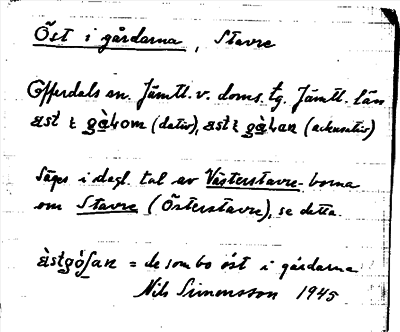 Öst i gårdarna, Stavre
Offerdals sn. Jämtl. v. doms. tg. Jämtl. län
äst ɩ gàʟom (dativ), äst ɩ gàʟan (ackusativ)
Säges i dagl. tal av Västerstavre-borna
om Stavre (Österstavre), se detta.
àstgó̀ʃan = de som bo öst i gårdarna
Nils Simonsson 1945